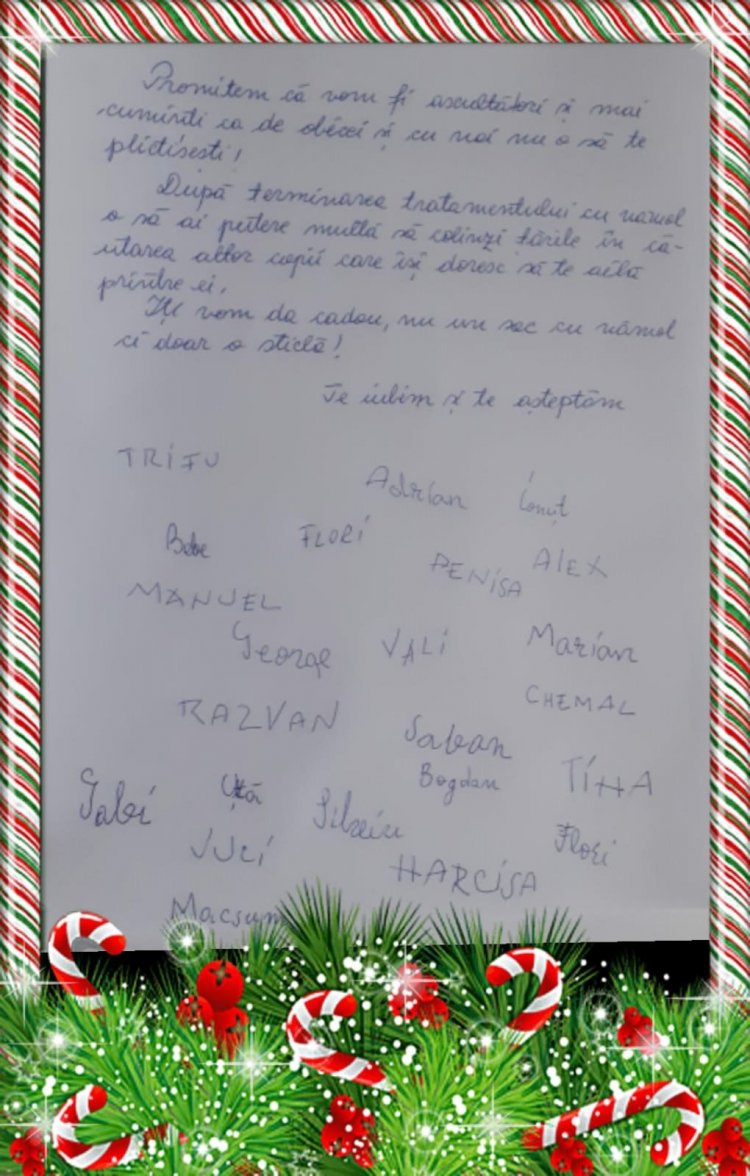 Promitem că vom fi ascultători și mai
cuminți ca de obicei și cu noi nu o să te
plictisești!
După terminarea tratamentului cu nămol
o să ai putere multă să colinzi țările în că-
utarea altor copii care își doresc să te aibă
printre ei.
Îți vom da cadou, nu un sac cu nămol
ci doar o sticlă!
Te iubim și te așteptăm
TRIFU
Adrian Ionuț
Bebe FLORI
DENISA ALEX
MANUEL
George VALI Marian
CHEMAL
RAZVAN
Saban
Bogdan TIHA
Gabi Uță Silviu
Flori
JULI
NARCISA
Macsum